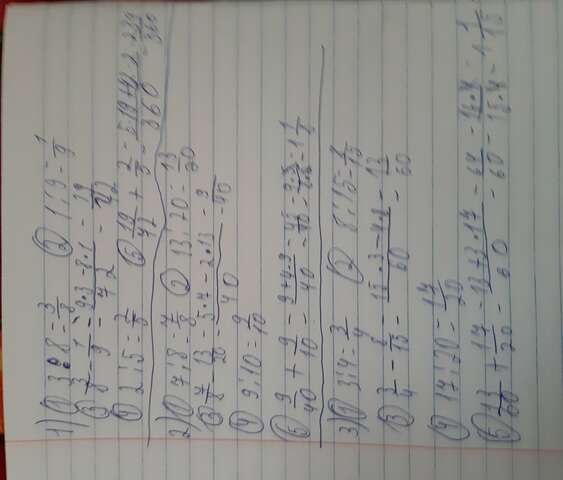 1) ① 3:8=3/8 ② 1:9=1/9
③ 3/8-1/9=9·3-8·1/72=19/72
④ 2:5=2/5 ⑤ 19/72+2/5=5·19+72·2/360=239/360
2) ① 7:8=7/8 ② 13:20=13/20
③ 7/8-13/20=5·7-2·13/40=9/40
④ 9:10=9/10
⑤ 9/40+9/10=9+4·9/40=45/40
3) ① 3:4=3/4 ② 8:15=8/15
③ 3/4-8/15=15·3-4·8/60=13/60
④ 17:20=17/20
⑤ 13/60+17/20=13+3·17/60=64/60